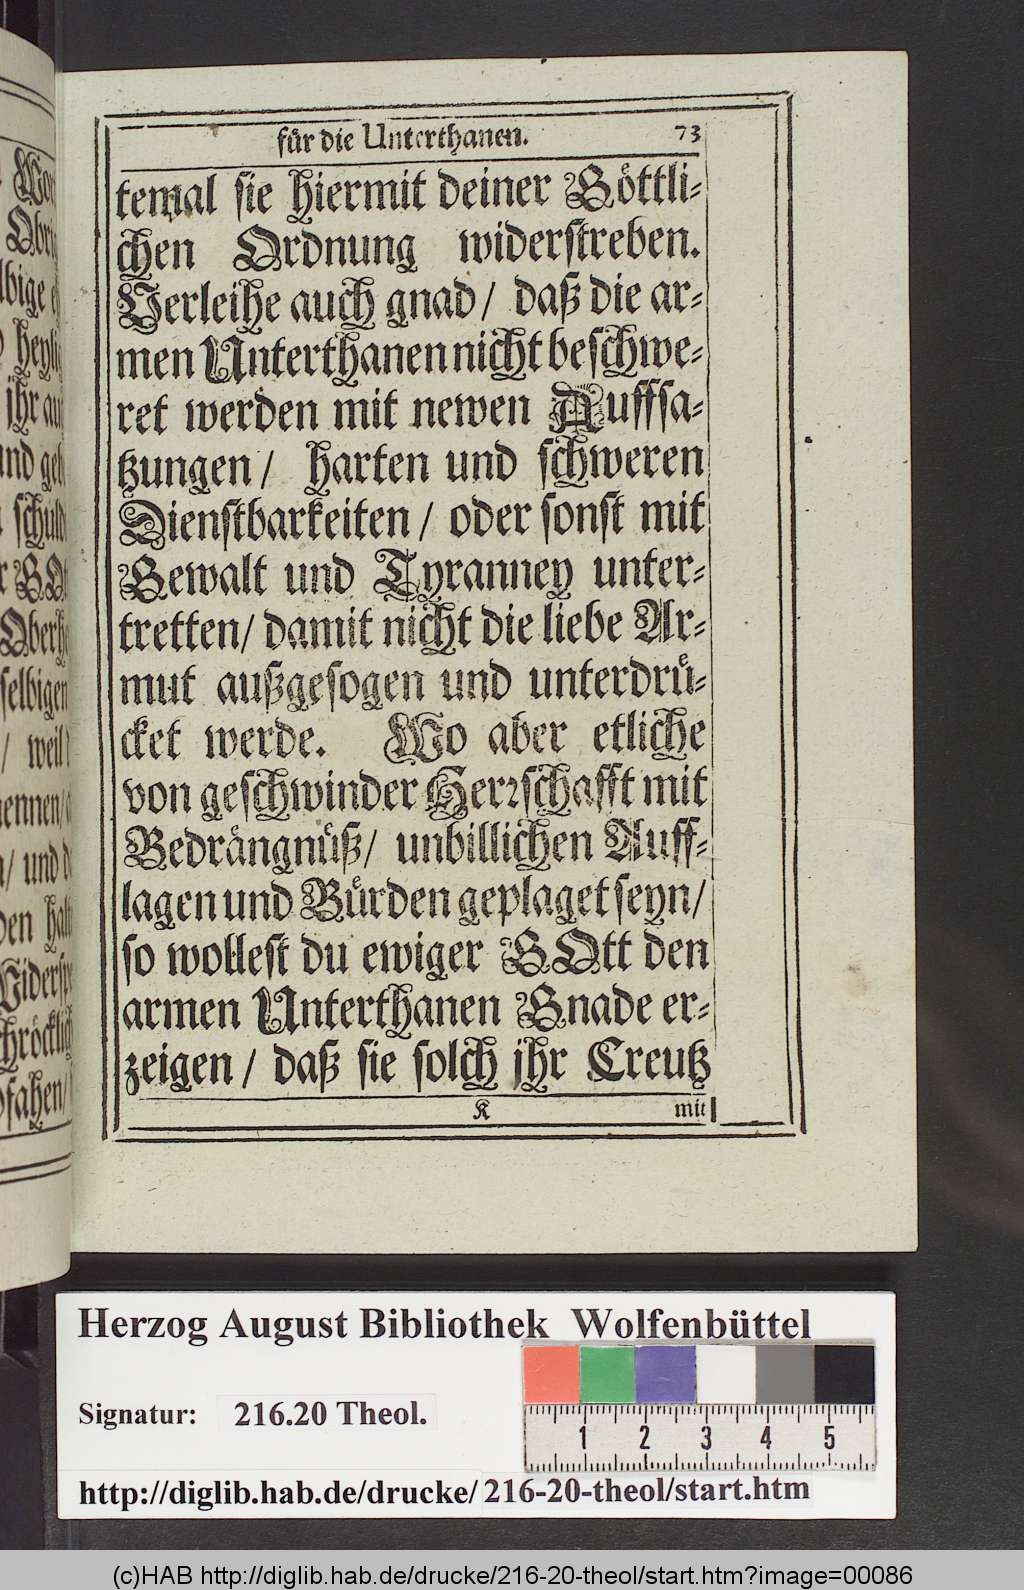 für die Unterthanen. 73
temal sie hiermit deiner Göttli-
chen Ordnung widerstreben.
Verleihe auch gnad / daß die ar-
men Unterthanen nicht beschwe-
ret werden mit newen Auffsa-
tzungen / harten und schweren
Dienstbarkeiten / oder sonst mit
Gewalt und Tyranney unter-
tretten / damit nicht die liebe Ar-
mut außgesogen und unterdrü-
cket werde. Wo aber etliche
von geschwinder Herrschafft mit
Bedrängnüß / unbillichen Auff-
lagen und Bürden geplaget seyn /
so wollest du ewiger GOtt den
armen Unterthanen Gnade er-
zeigen / daß sie solch jhr Creutz
K mit
Herzog August Bibliothek Wolfenbüttel
Signatur: 216.20 Theol.
1 2 3 4 5
http://diglib.hab.de/drucke/216-20-theol/start.htm
(c)HAB http://diglib.hab.de/drucke/216-20-theol/start.htm?image=00086